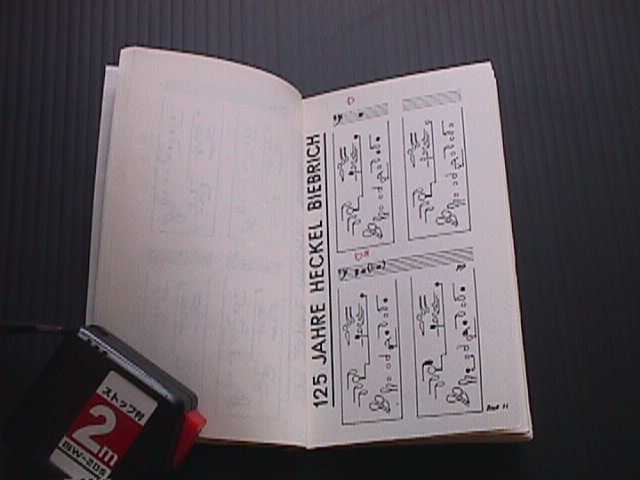 125 JAHRE HECKEL BIEBRICH
ストップ付
2m